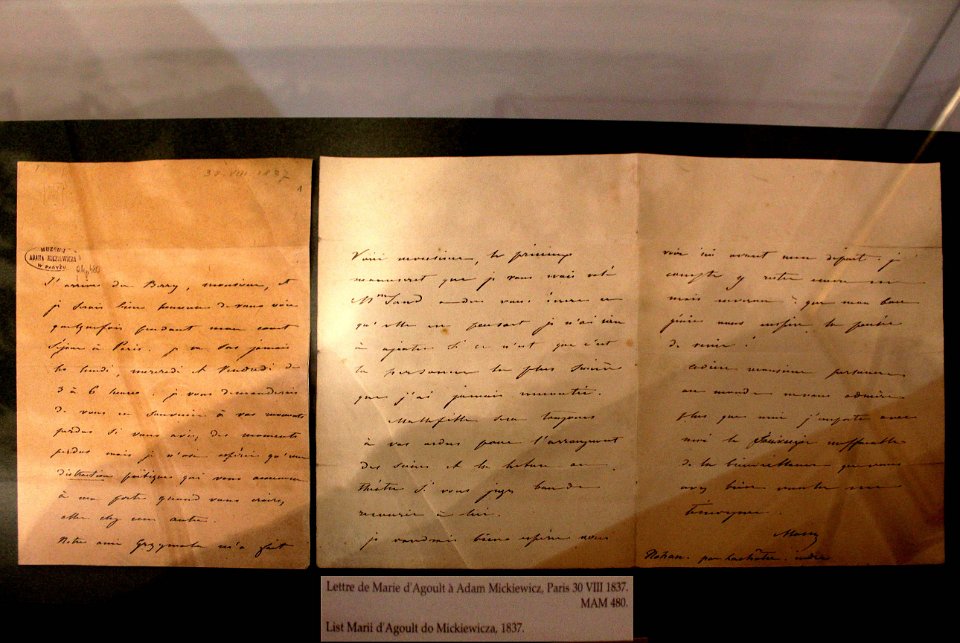 30. VIII. 1837
MUZEUM
ADAMA MICKIEWICZA
W PARYŻU
J'arrive du Berry, monsieur, et
je serai bien heureuse de vous voir
quelquefois pendant mon court
séjour à Paris. je ne sors jamais
les lundi, mercredi et vendredi de
3 à 6 heures. je vous demanderais
de vous en souvenir à vos moments
perdus si vous aviez des moments
perdus mais je n'ose espérer qu'une
distraction poétique qui vous
à ma porte quand vous croirez
chez un autre.
Notre ami Grzymala m'a fait
Voici monsieur, le
manuscrit que je vous avais
Mme Sand vous
qu'elle en pensait je n'ai rien
à ajouter si ce n'est que c'est
la personne la plus
que j'ai jamais
Mallefille sera toujours
à vos ordres pour l'arrangement
des scènes et la lecture au
théâtre si vous jugez bon de
recourir à lui.
je voudrais bien espérer vous
voir ici avant mon départ. j'
compte y rester encore un
mois environ; que mon bon
génie vous inspire la pensée
de venir!
adieu monsieur personne
au monde ne vous admire
plus que moi j'emporte avec
moi le souvenir ineffaçable
de la bienveillance que vous
avez bien voulu me
témoigner.
Marie
Nohant. par La Châtre. indre
Lettre de Marie d'Agoult à Adam Mickiewicz, Paris 30 VIII 1837.
MAM 480.
List Marii d'Agoult do Mickiewicza, 1837.